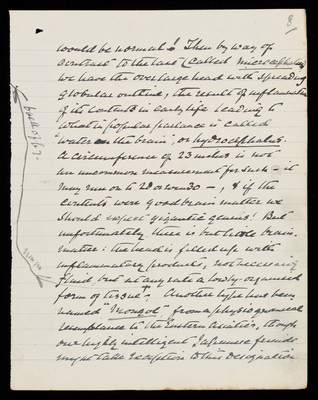 8
would be normal! Then by way of
contrast to the last (called microcephales
we have the overlarge head with spreading
globular outline, the result of inflammation
of its contents in early life leading to
what in popular parlance is called
"water on the brain", or hydrocephalus.
A circumference of 23 inches is not
an uncommon measurement for such - it
may run on to 28 or even 30 -, & if the
contents were good brain matter we
should expect gigantic genius! But
unfortunately there is but little brain-
matter: the head is filled up with
inflammatory products, not necessarily
fluid, but at any rate a lowly-organised
form of tissue. Another type has been
named "Mongol" from a physiognomical
resemblance to the Eastern Asiatics, though
our highly intelligent Japanese friends
might take exception to this designation